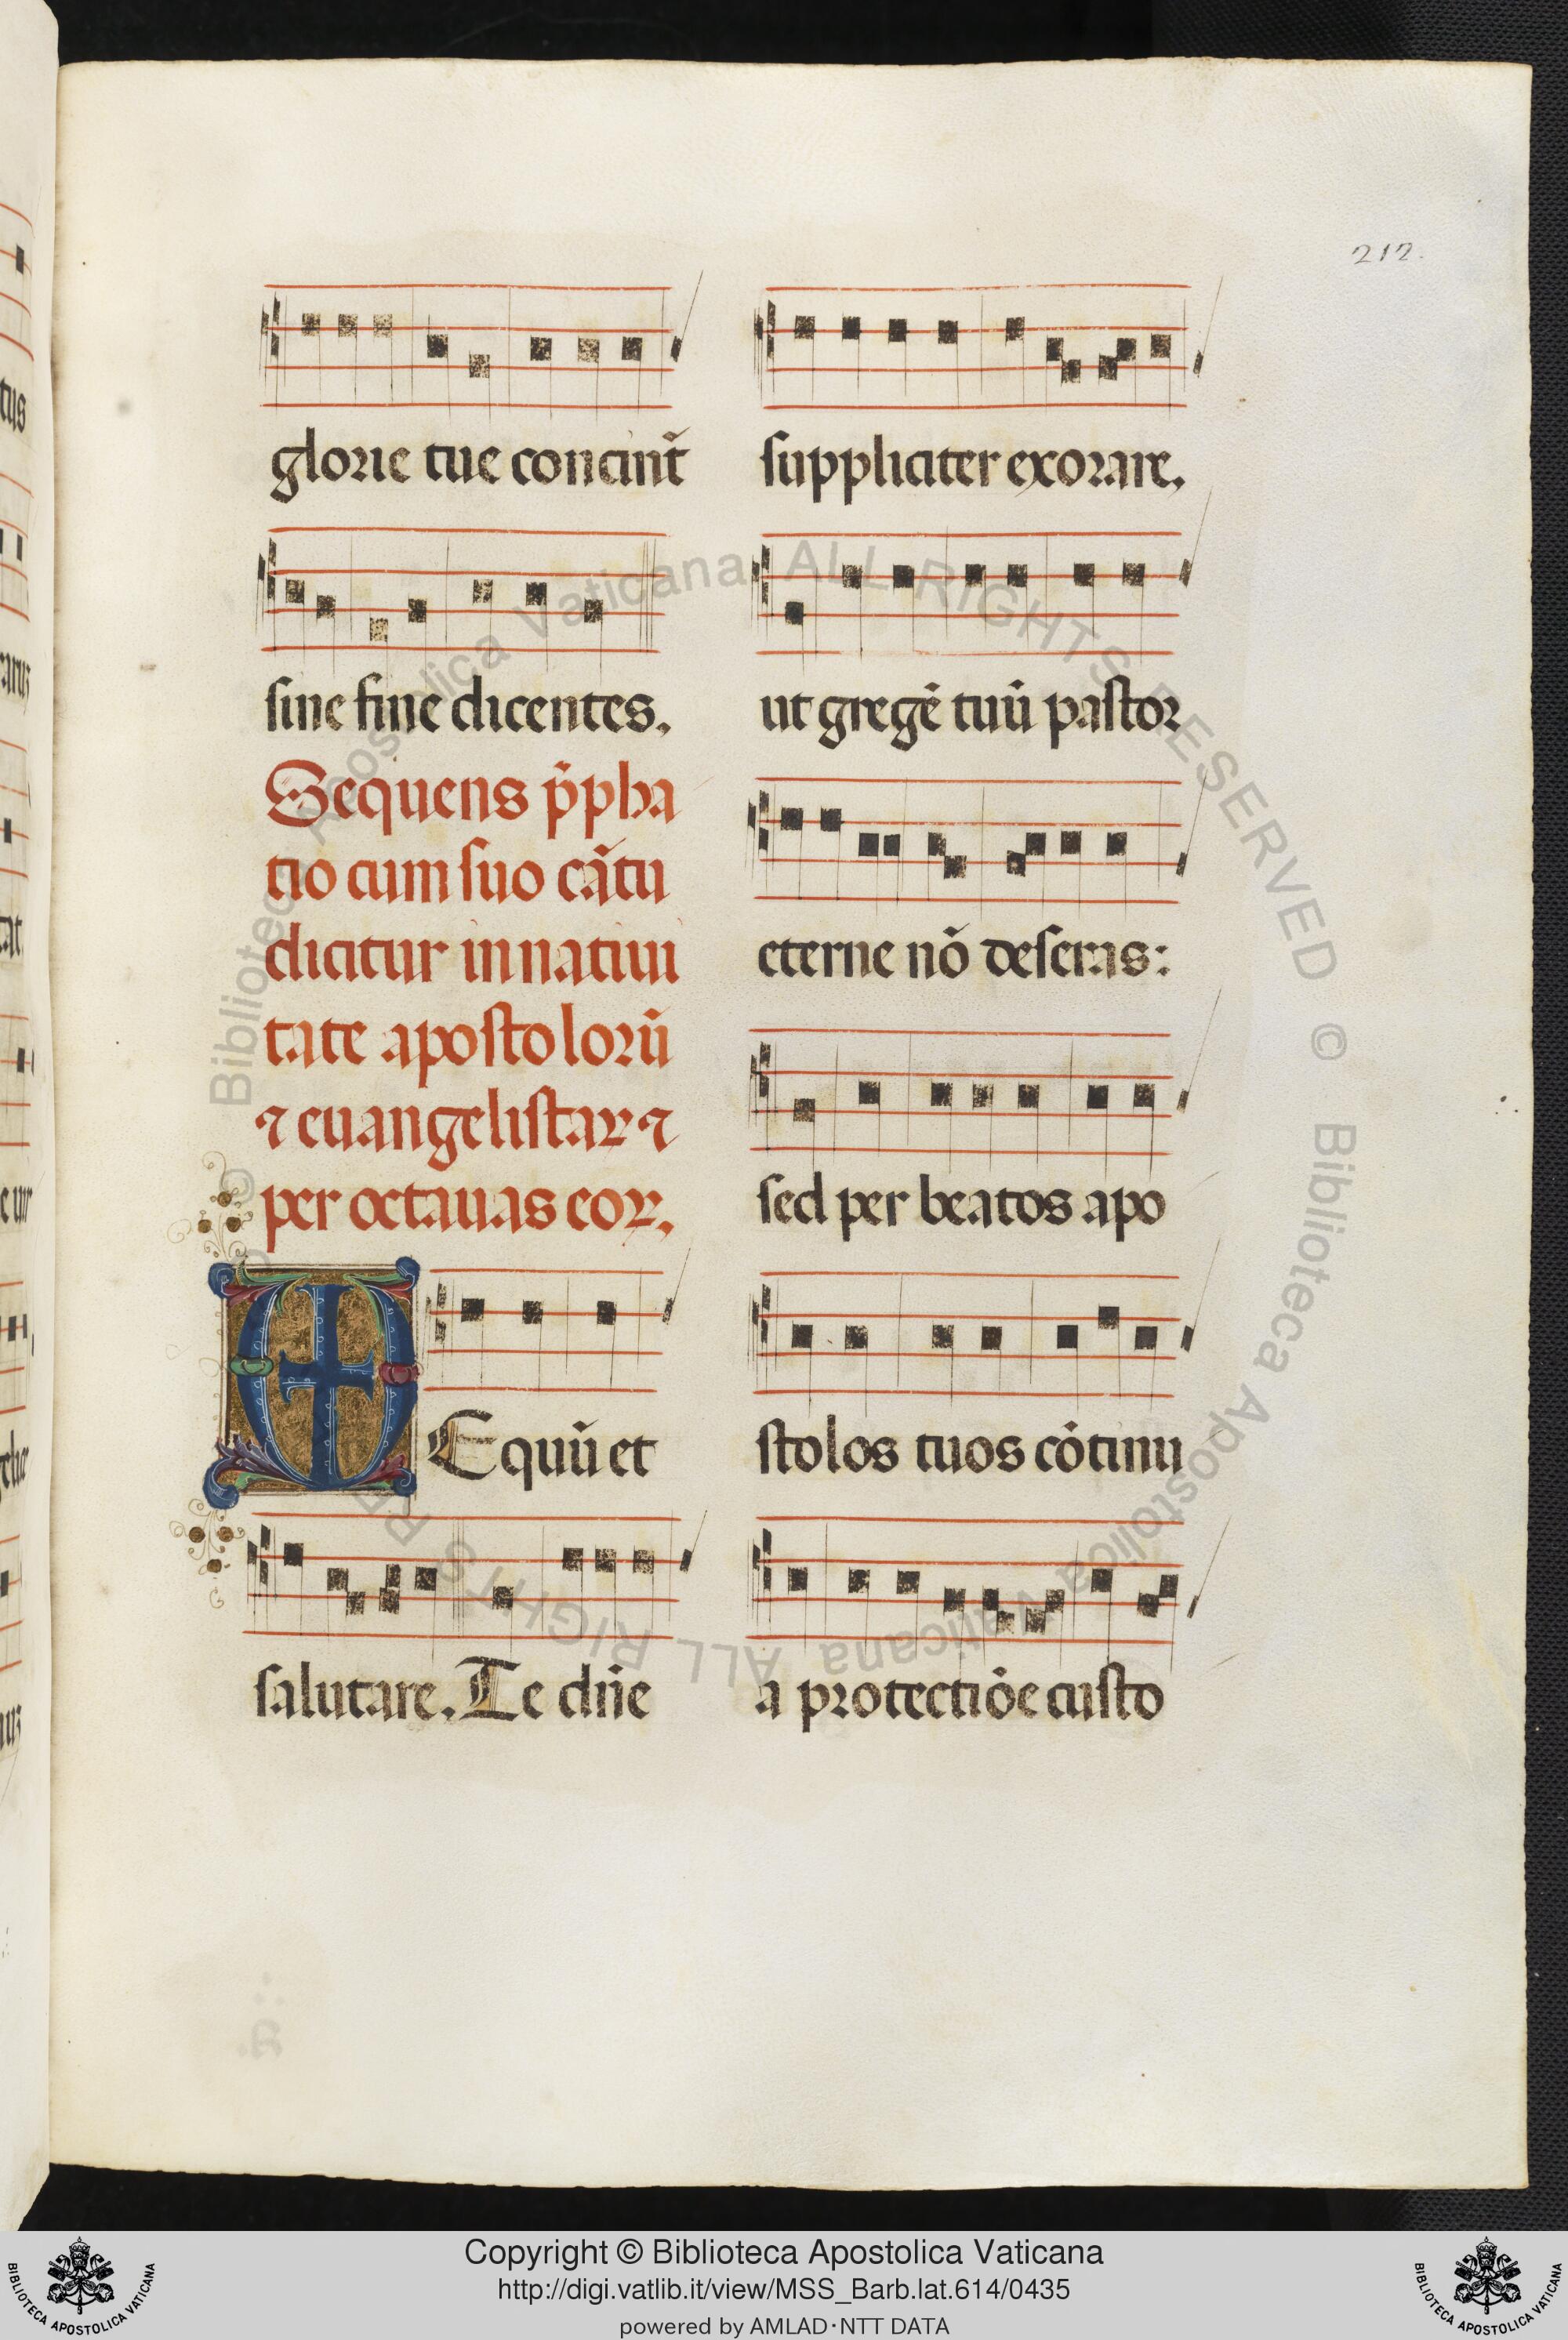 212.
glorie tue concint̄
sine fine dicentes.
Sequens p̄pha
tio cum suo cātu
dicitur in natiui
tate apostolorū
⁊ euangelistaꝝ ⁊
per octauas eoꝝ.
Equū et
salutare. Te dn̄e
suppliciter exorare.
ut gregē tuū pastor
eterne nō deseras:
sed per beatos apo
stolos tuos cōtinu
a protectiōe custo
© Biblioteca Apostolica Vaticana ALL RIGHTS RESERVED © Biblioteca Apostolica Vaticana ALL RIGHTS RE
Copyright © Biblioteca Apostolica Vaticana
http://digi.vatlib.it/view/MSS_Barb.lat.614/0435
powered by AMLAD·NTT DATA
BIBLIOTECA APOSTOLICA VATICANA
BIBLIOTECA APOSTOLICA VATICANA